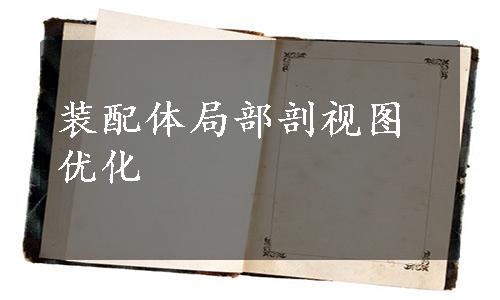 装配体局部剖视图
优化